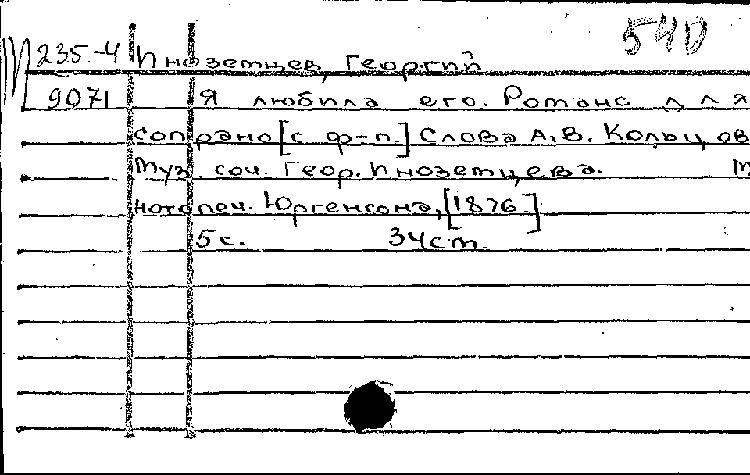 540
235-4 Иноземцев, Георгий
9071 Я любила его. Романс для
сопрано [с ф-п.] Слова А.В. Кольцов
Муз. соч. Геор. Иноземцева. М
нотопеч. Юргенсона, [1876]
5 с. 34 см.